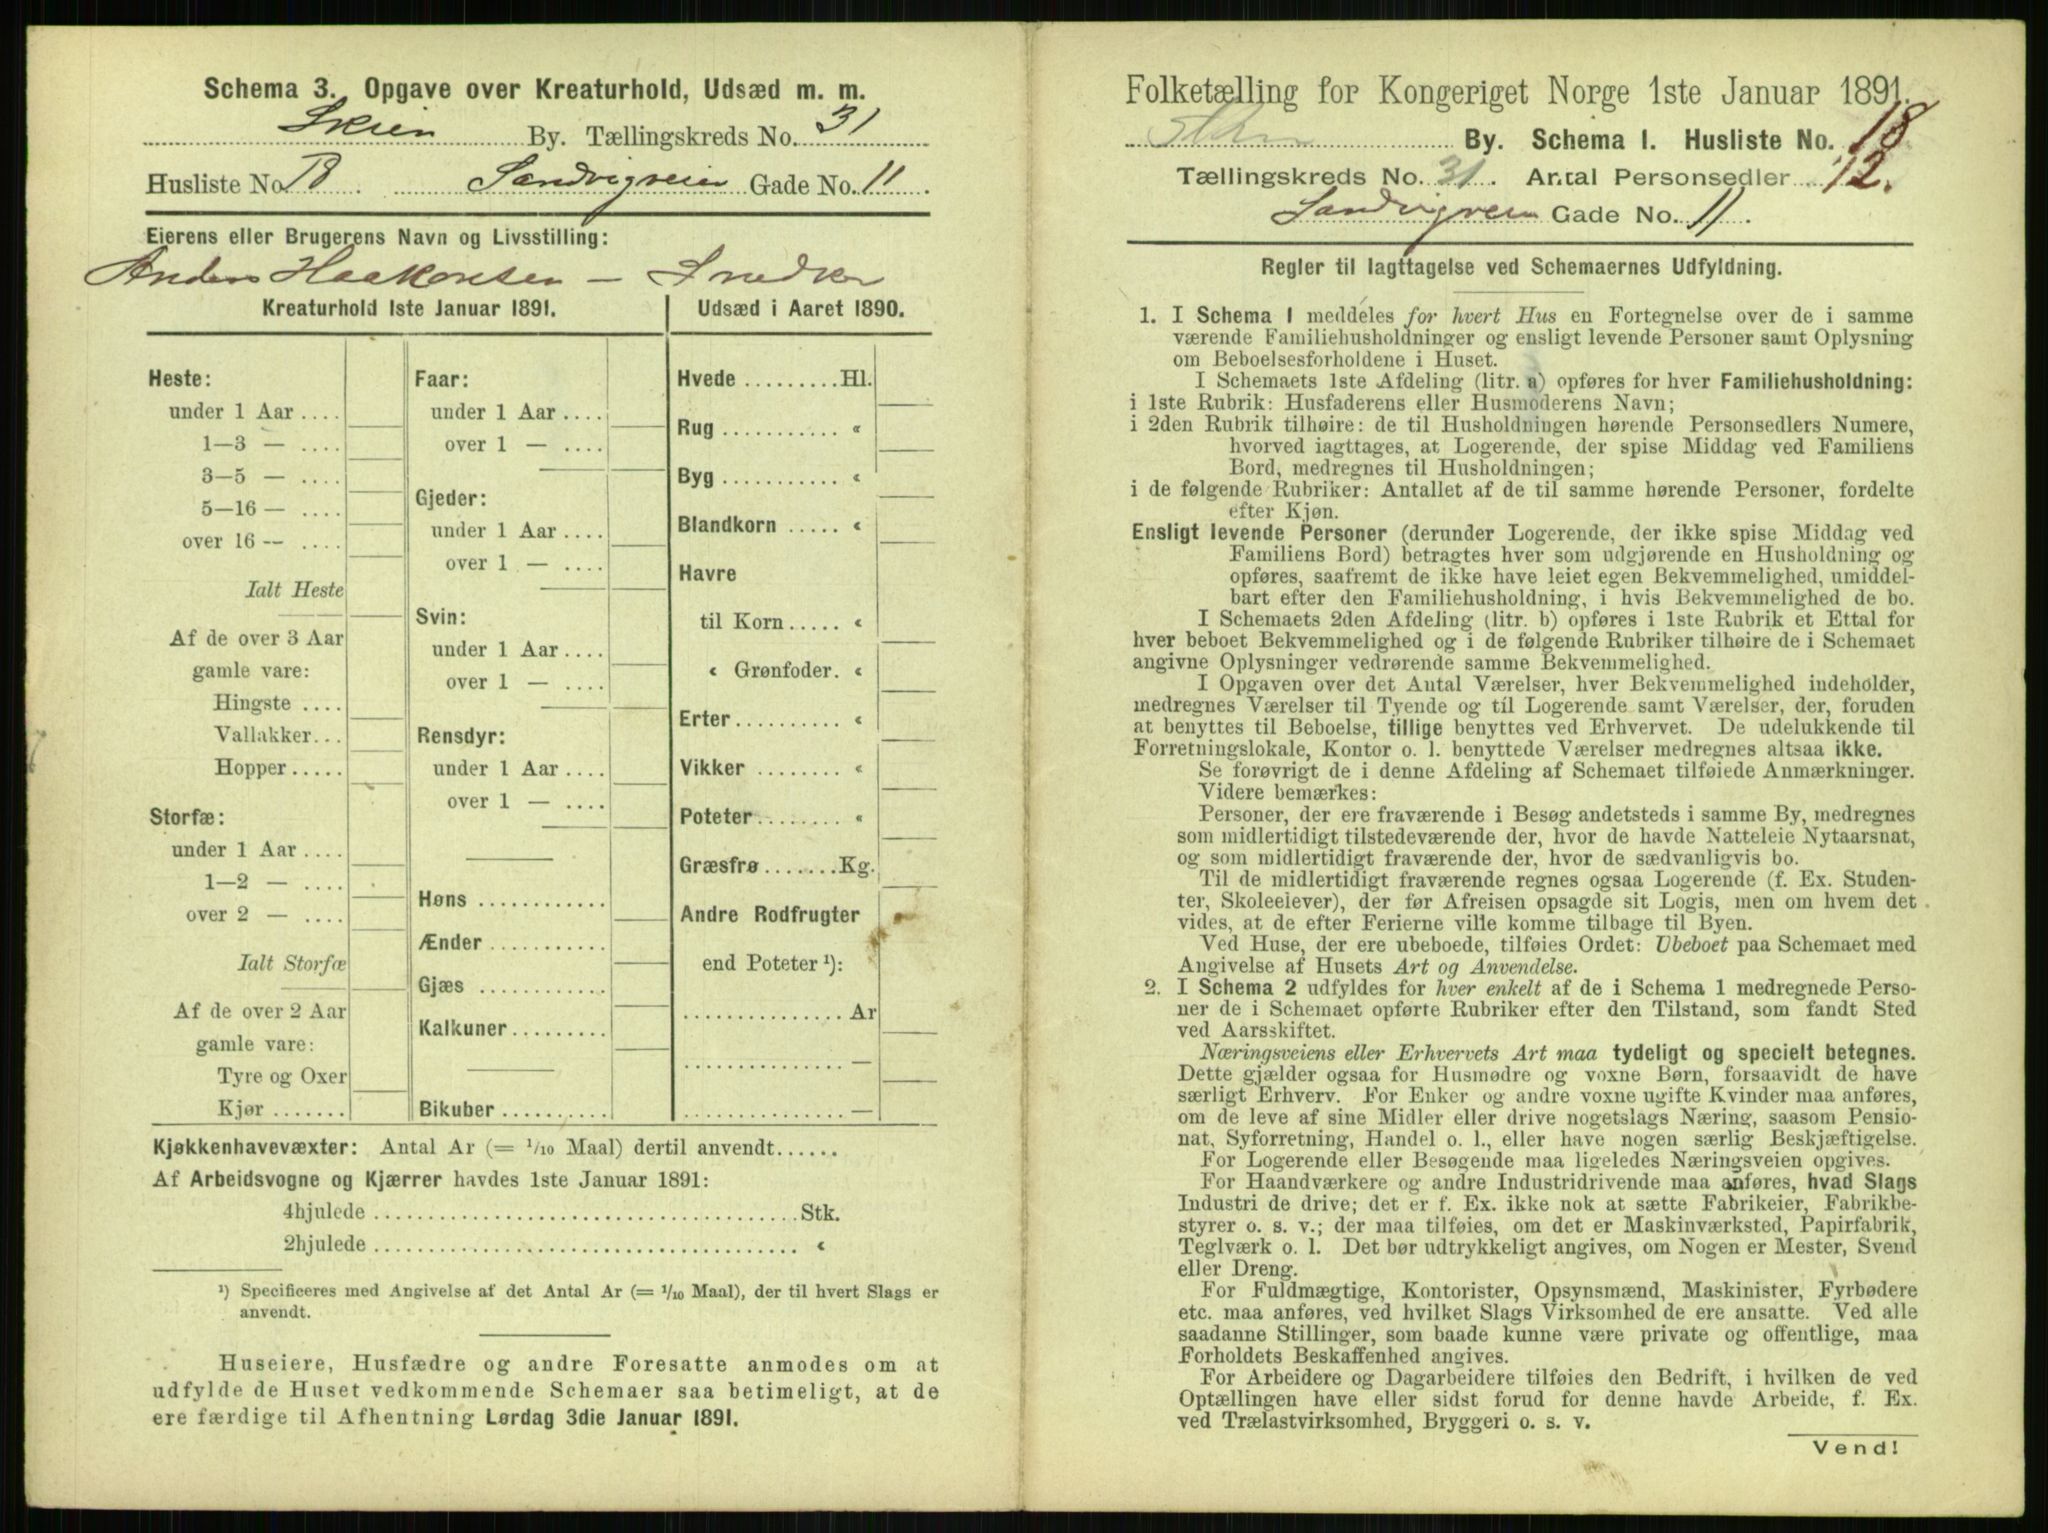 Schema 3. Opgave over Kreaturhold, Udsæd m. m.
Skien By. Tællingskreds No. 31
Husliste No. 18 Sandvigveien Gade No. 11.
Eierens eller Brugerens Navn og Livsstilling:
Anders Haakonsen – Snedker
Kreaturhold 1ste Januar 1891.
Heste:
under 1 Aar ....
1—3 — ....
3—5 — ....
5—16 — ....
over 16 -- ....
Ialt Heste
Af de over 3 Aar
gamle vare:
Hingste ....
Vallakker...
Hopper.....
Storfæ:
under 1 Aar ....
1—2 — ....
over 2 — ....
Ialt Storfæ
Af de over 2 Aar
gamle vare:
Tyre og Oxer
Kjør .......
Faar:
under 1 Aar ....
over 1 — ....
Gjeder:
under 1 Aar ....
over 1 — ....
Svin:
under 1 Aar ....
over 1 — ....
Rensdyr:
under 1 Aar ....
over 1 — ....
Høns ............
Ænder ...........
Gjæs ............
Kalkuner.........
Bikuber ..........
Udsæd i Aaret 1890.
Hvede .........Hl.
Rug ........... «
Byg ........... «
Blandkorn ..... «
Havre
til Korn..... «
« Grønfoder. «
Erter.......... «
Vikker ........ «
Poteter........ «
Græsfrø .......Kg.
Andre Rodfrugter
end Poteter ¹):
............... Ar
............... —
...............—
Kjøkkenhavevæxter: Antal Ar (= 1/10 Maal) dertil anvendt......
Af Arbeidsvogne og Kjærrer havdes 1ste Januar 1891:
4hjulede ........................................Stk.
2hjulede ........................................ «
¹) Specificeres med Angivelse af det Antal Ar (= 1/10 Maal), der til hvert Slags er
anvendt.
Huseiere, Husfædre og andre Foresatte anmodes om at
udfylde de Huset vedkommende Schemaer saa betimeligt, at de
ere færdige til Afhentning Lørdag 3die Januar 1891.
Folketælling for Kongeriget Norge 1ste Januar 1891.
Skien By. Schema 1. Husliste No. 18
Tællingskreds No. 31. Antal Personsedler 12.
Sandvigveien Gade No. 11.
Regler til Iagttagelse ved Schemaernes Udfyldning.
1. I Schema 1 meddeles for hvert Hus en Fortegnelse over de i samme
værende Familiehusholdninger og ensligt levende Personer samt Oplysning
om Beboelsesforholdene i Huset.
I Schemaets 1ste Afdeling (litr. a) opføres for hver Familiehusholdning:
i 1ste Rubrik: Husfaderens eller Husmoderens Navn;
i 2den Rubrik tilhøire: de til Husholdningen hørende Personsedlers Numere,
hvorved iagttages, at Logerende, der spise Middag ved Familiens
Bord, medregnes til Husholdningen;
i de følgende Rubriker: Antallet af de til samme hørende Personer, fordelte
efter Kjøn.
Ensligt levende Personer (derunder Logerende, der ikke spise Middag ved
Familiens Bord) betragtes hver som udgjørende en Husholdning og
opføres, saafremt de ikke have leiet egen Bekvemmelighed, umiddel-
bart efter den Familiehusholdning, i hvis Bekvemmelighed de bo.
I Schemaets 2den Afdeling (litr. b) opføres i 1ste Rubrik et Ettal for
hver beboet Bekvemmelighed og i de følgende Rubriker tilhøire de i Schemaet
angivne Oplysninger vedrørende samme Bekvemmelighed.
I Opgaven over det Antal Værelser, hver Bekvemmelighed indeholder,
medregnes Værelser til Tyende og til Logerende samt Værelser, der, foruden
at benyttes til Beboelse, tillige benyttes ved Erhvervet. De udelukkende til
Forretningslokale, Kontor o. l. benyttede Værelser medregnes altsaa ikke.
Se forøvrigt de i denne Afdeling af Schemaet tilføiede Anmærkninger.
Videre bemærkes:
Personer, der ere fraværende i Besøg andetsteds i samme By, medregnes
som midlertidigt tilstedeværende der, hvor de havde Natteleie Nytaarsnat,
og som midlertidigt fraværende der, hvor de sædvanligvis bo.
Til de midlertidigt fraværende regnes ogsaa Logerende (f. Ex. Studen-
ter, Skoleelever), der før Afreisen opsagde sit Logis, men om hvem det
vides, at de efter Ferierne ville komme tilbage til Byen.
Ved Huse, der ere ubeboede, tilføies Ordet: Ubeboet paa Schemaet med
Angivelse af Husets Art og Anvendelse.
2. I Schema 2 udfyldes for hver enkelt af de i Schema 1 medregnede Perso-
ner de i Schemaet opførte Rubriker efter den Tilstand, som fandt Sted
ved Aarsskiftet.
Næringsveiens eller Erhvervets Art maa tydeligt og specielt betegnes.
Dette gjælder ogsaa for Husmødre og voxne Børn, forsaavidt de have
særligt Erhverv. For Enker og andre voxne ugifte Kvinder maa anføres,
om de leve af sine Midler eller drive nogetslags Næring, saasom Pensio-
nat, Syforretning, Handel o. l., eller have nogen særlig Beskjæftigelse.
For Logerende eller Besøgende maa ligeledes Næringsveien opgives.
For Haandværkere og andre Industridrivende maa anføres, hvad Slags
Industri de drive; det er f. Ex. ikke nok at sætte Fabrikeier, Fabrikbe-
styrer o. s. v.; der maa tilføies, om det er Maskinværksted, Papirfabrik,
Teglværk o. l. Det bør udtrykkeligt angives, om Nogen er Mester, Svend
eller Dreng.
For Fuldmægtige, Kontorister, Opsynsmænd, Maskinister, Fyrbødere
etc. maa anføres, ved hvilket Slags Virksomhed de ere ansatte. Ved alle
saadanne Stillinger, som baade kunne være private og offentlige, maa
Forholdets Beskaffenhed angives.
For Arbeidere og Dagarbeidere tilføies den Bedrift, i hvilken de ved
Optællingen have eller sidst forud for denne havde Arbeide, f. Ex.
ved Trælastvirksomhed, Bryggeri o. s. v.
Vend!